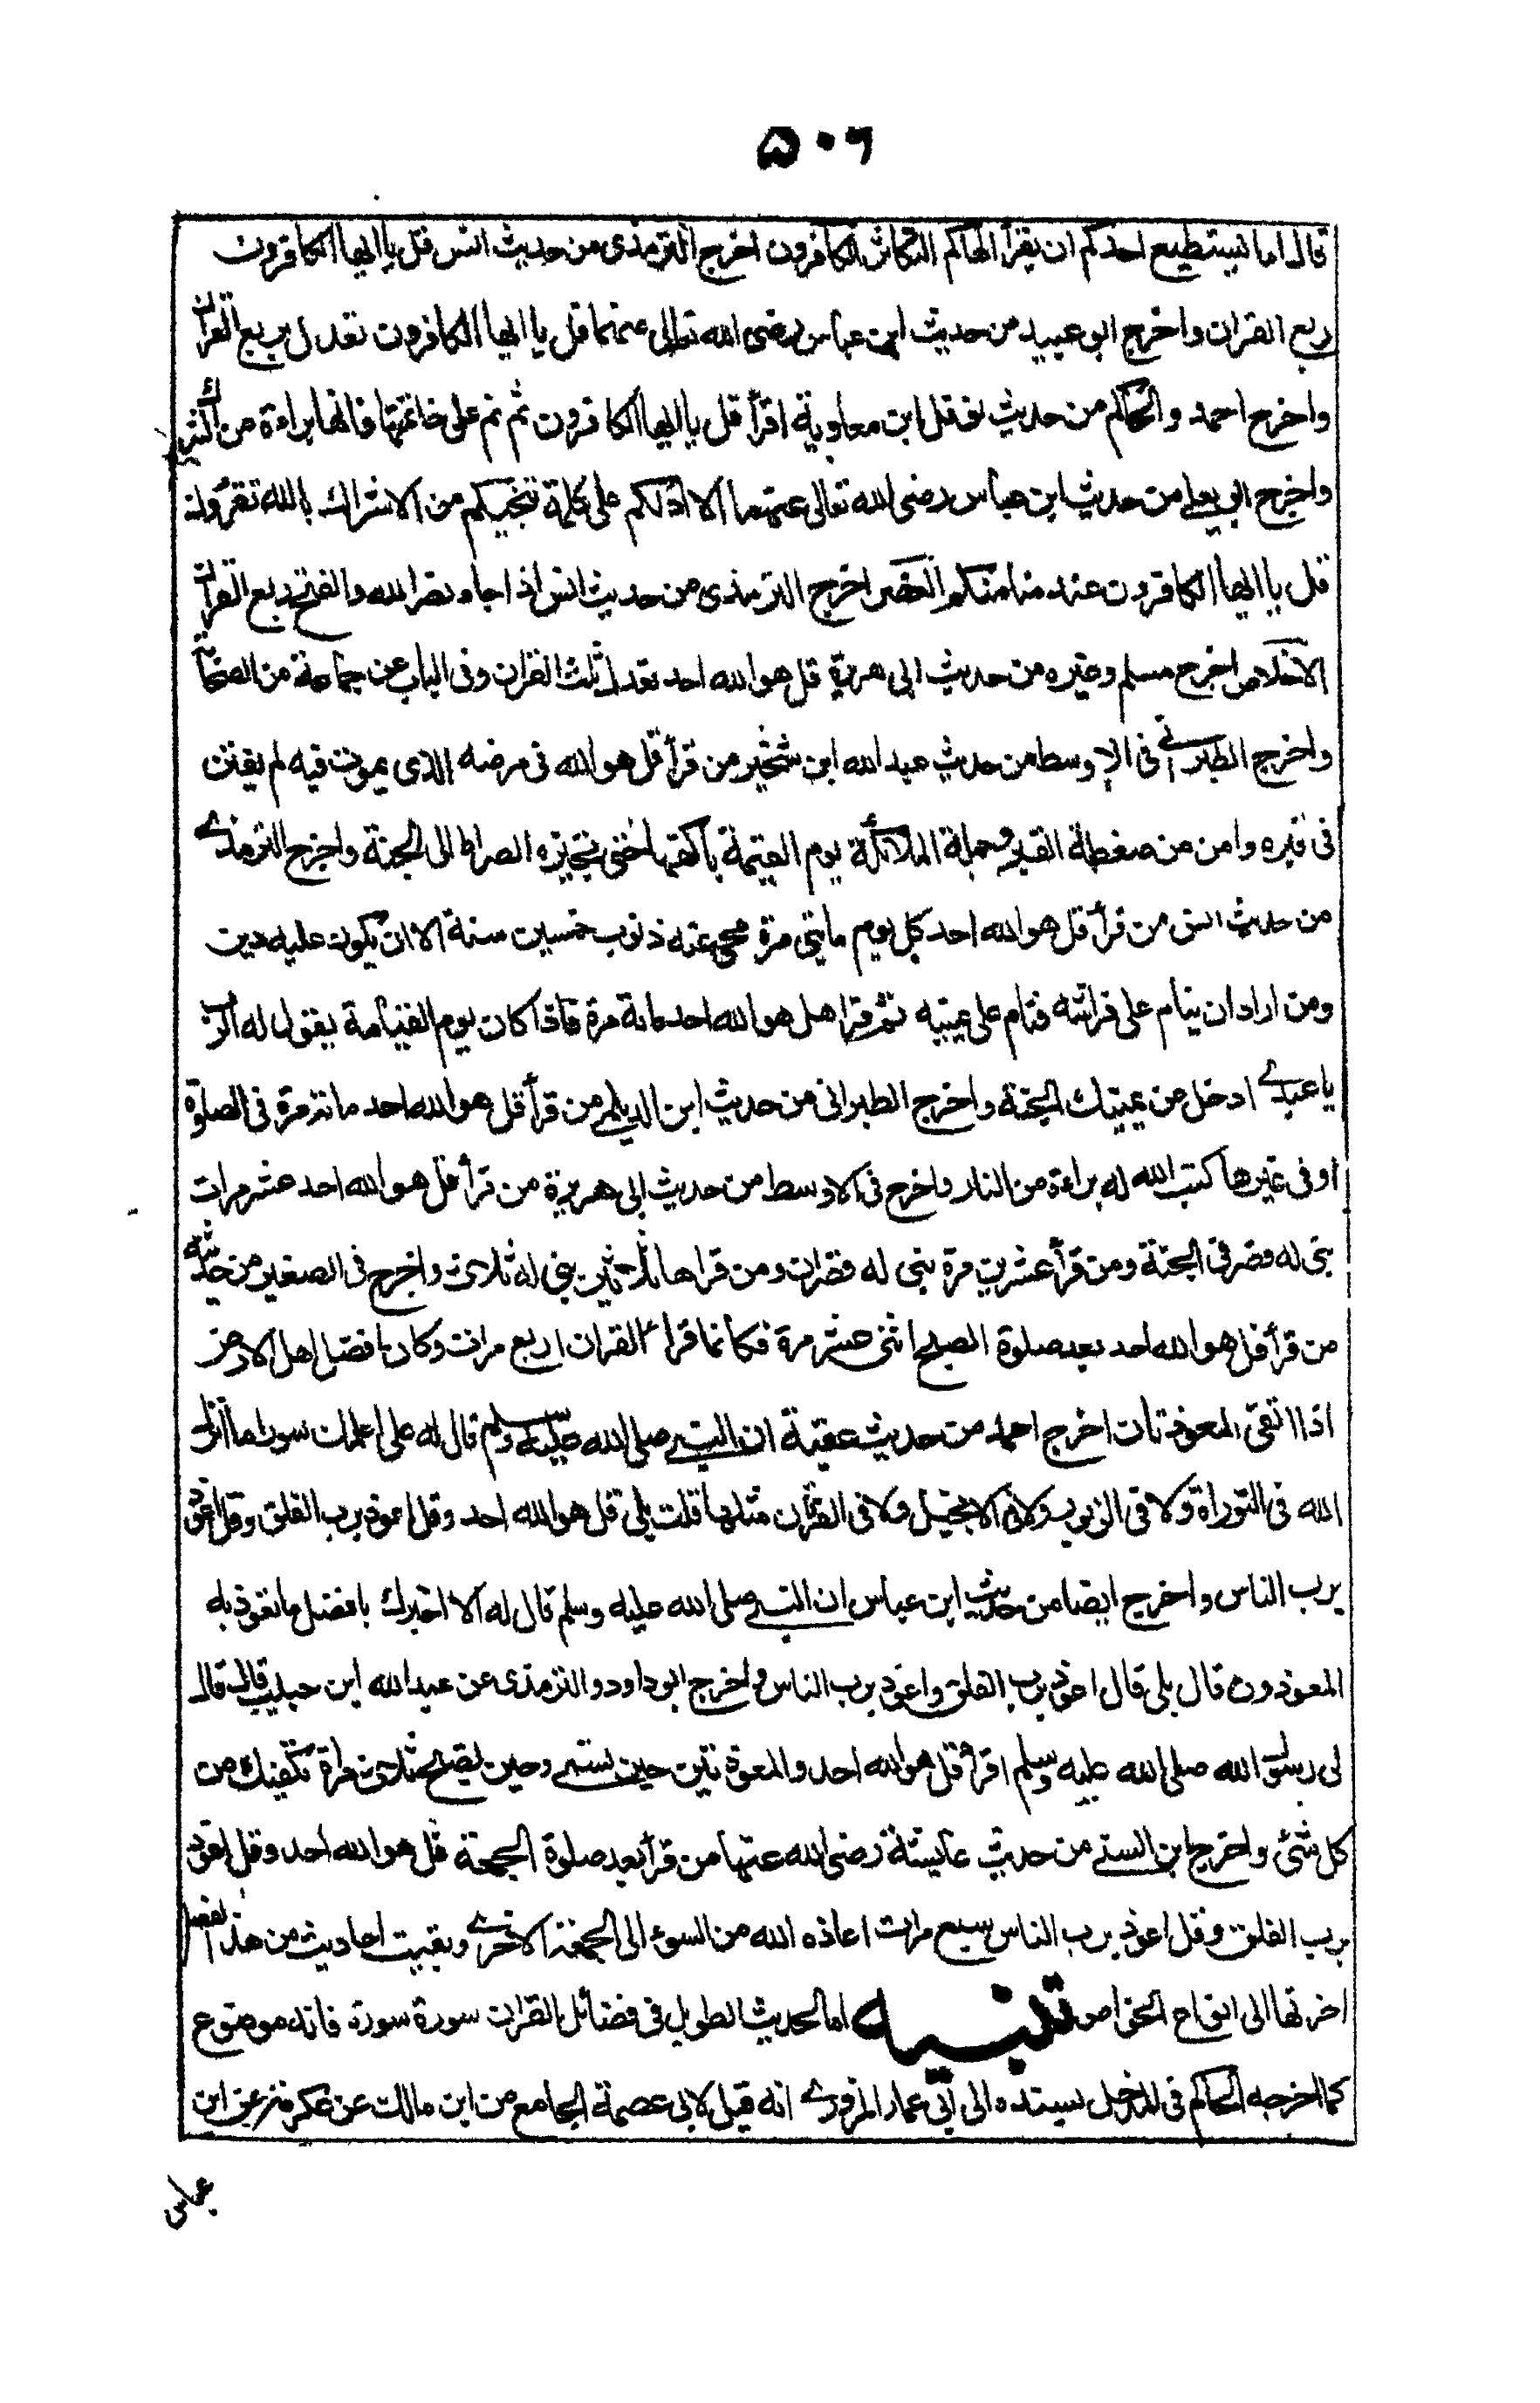 ۵۰۶
قال اما يستطيع احدكم ان يقرأ الهاكم التكاثر الكافرون اخرج الترمذى من حديث انس قل يا ايها الكافرون
ربع القران واخرج ابو عبيد من حديث ابن عباس رضى الله تعالى عنهما قل يا ايها الكافرون تعدل بربع القران
واخرج احمد والحاكم من حديث نوفل ابن معاوية اقرأ قل يا ايها الكافرون ثم نم على خاتمتها فانها براءة من الشرك
واخرج ابى يعلے من حديث ابن عباس رضى الله تعالى عنهما الا ادلكم على كلمة تنجيكم من الاشراك بالله تقرؤن
قل يا ايها الكافرون عند منامنكم النصر اخرج الترمذى من حديث انس اذا جاء نصر الله والفتح ربع القران
الاخلاص اخرج مسلم وغيره من حديث ابى هريرة قل هو الله احد تعدل ثلث القران وفى الباب عن جماعة من الصحابة
واخرج الطبرانے فى الاوسط من حديث عبد الله ابن شخير من قرأ قل هو الله فى مرضه الذى يموت فيه لم يفتن
فى قبره وامن من ضغطة القبر وحملة الملائكة يوم القيمة باكفها حتى تجيزه الصراط الى الجنة واخرج الترمذے
من حديث انس من قرأ قل هو الله احد كل يوم مايتى مرة محى عنه ذنوب خمسين سنة الا ان يكون عليه دين
ومن اراد ان ينام على فراشه فنام على يمينه ثم قرا هل هو الله احد مائة مرة فاذا كان يوم القيامة يقول له الرب
يا عبدے ادخل من يمينك الجنة واخرج الطبرانى من حديث ابن الديلمے من قرأ قل هو الله احد مائة مرة فى الصلوة
او فى غيرها كتب الله له براءة من النار واخرج فى الاوسط من حديث ابى هريرة من قرأ قل هو الله احد عشر مرات
بنى له قصر فى الجنة ومن قرأ عشرين مرة بنى له قصران ومن قراها ثلاثين بنى له ثلاث واخرج فى الصغير من حديثه
من قرأ قل هو الله احد بعد صلوة الصبح اثنى عشر مرة فكانما قرأ القران اربع مرات وكان افضل اهل الارض
اذا اتقى المعوذتان اخرج احمد من حديث عقبة ان النبے صلى الله عليه وسلم قال له على اعلمك سورا ما انزل
الله فى التوراة ولا فى الزبور ولا فى الانجيل ولا فى القران مثلها قلت بلى قل هو الله احد وقل اعوذ برب الفلق وقل اعوذ
برب الناس واخرج ايضا من حديث ابن عباس ان النبے صلى الله عليه وسلم قال له الا اخبرك بافضل ما تعوذ به
المعوذون قال بلى قال اعوذ برب الفلق واعوذ برب الناس واخرج ابو داود والترمذى عن عبد الله ابن حبيب قال قال
لى رسول الله صلى الله عليه وسلم اقرأ قل هو الله احد والمعوذتين حين تمسے وحين تصبح ثلاث مرة تكفيك من
كل شئ واخرج ابن السنے من حديث عائيشة رضى الله عنها من قرأ بعد صلوة الجمعة قل هو الله احد وقل اعوذ
برب الفلق وقل اعوذ برب الناس سبع مرات اعاذه الله من السوء الى الجمعة الاخرے وبقيت احاديث من هذا الفصل
اخرتها الى انواع الخواص تنبيه اما الحديث الطويل فى فضائل القران سورة سورة فانه موضوع
كما اخرجه الحاكم فى المدخل بسنده الى ابى عمار المروزے انه قيل لابى عصمة الجامع من اين مالك عن عكرمة عن ابن